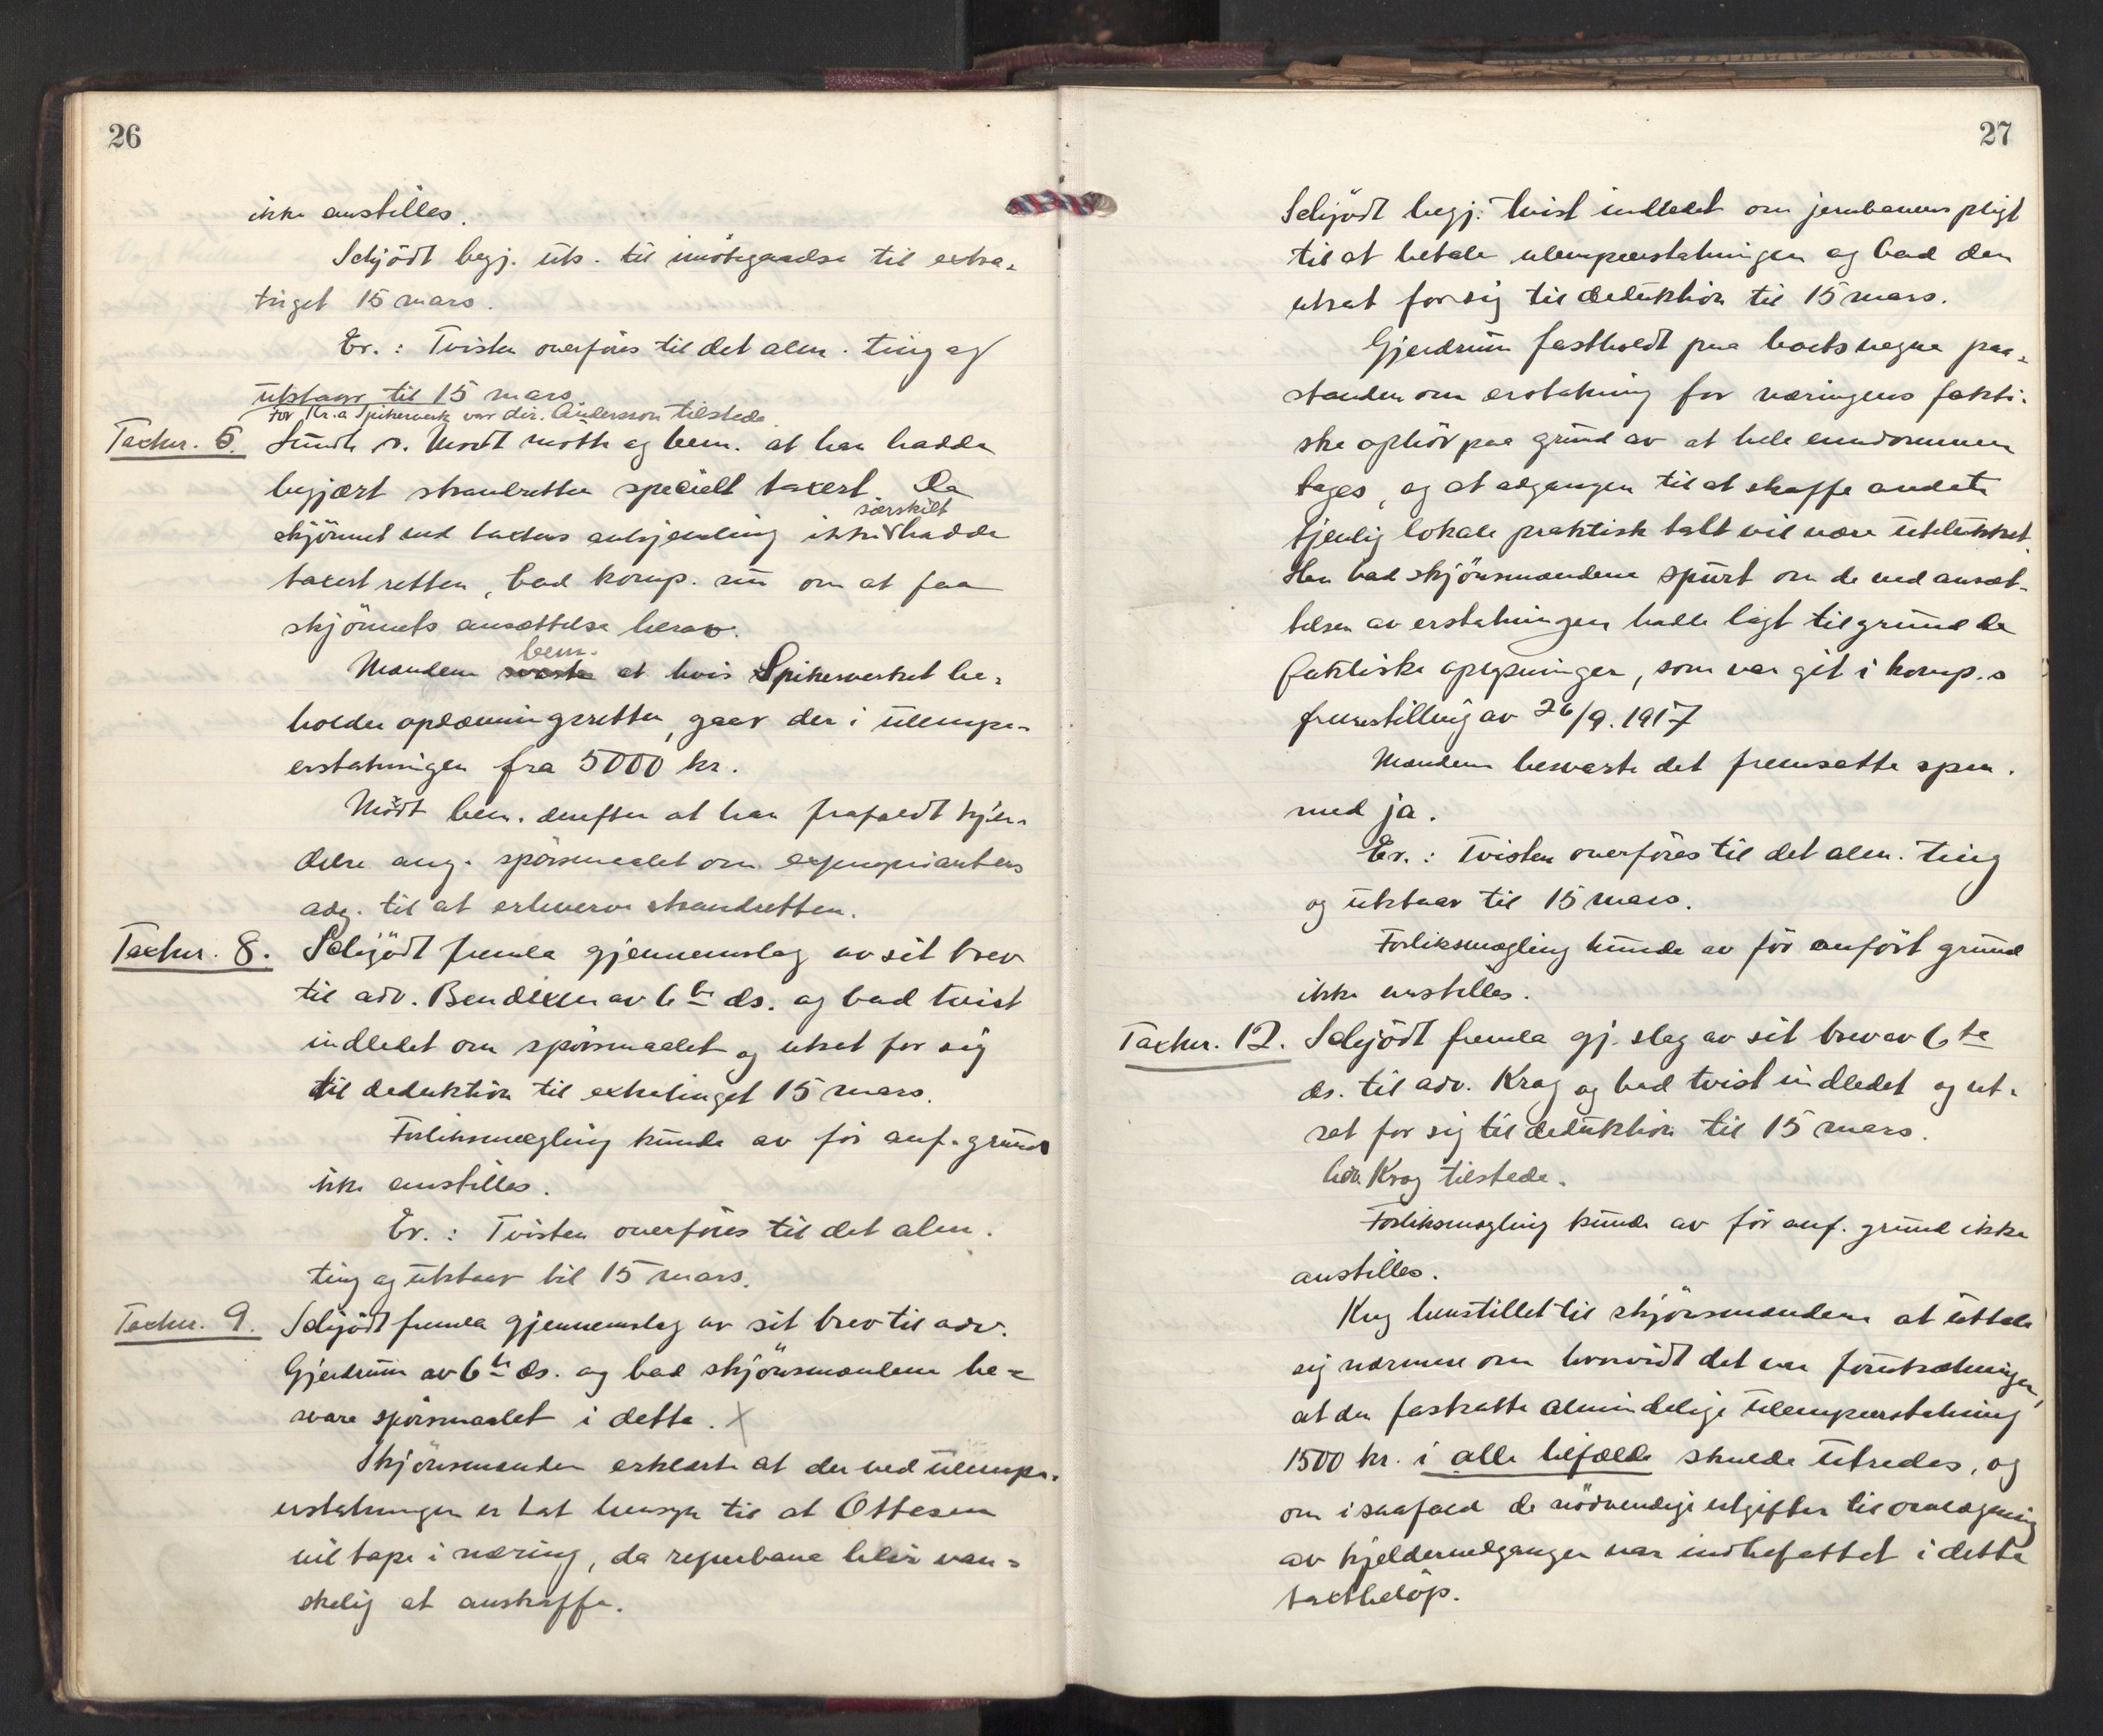 26
ikke anstilles.
Schjödt begj. uts. til imötegaaelse til extra-
tinget 15 mars.
Er.: Tvisten overföres til det alm. ting og
utstaar til 15 mars.
For Kr.a Spikerverk var dir. Andersson tilstede.
Taxtnr. 6. Sundt v. Modt mötte og bem. at han hadde
begjært strandretten specielt taxert. Da
særskilt
skjönnet ved taxtens avhjemling ikke hadde
taxert retten, bad komp. nu om at faa
skjönnets ansættelse herav.
bem.
Mændene svarte at hvis Spikerverket be-
holder oplænningsretten, gaar der i ulempe-
erstatningen fra 5000 kr.
Mödt bem. derefter at han frafaldt kjen-
delse ang. spörsmaalet om expropriantens
adg. til at erhverve strandretten.
Taxtnr. 8. Schjödt fremla gjennemslag av sit brev
til adv. Bendixen av 6te ds. og bad tvist
indledet om spörsmaalet og utsat for sig
til deduktion til extratinget 15 mars.
Forliksmægling kunde av för anf. grund
ikke anstilles.
Er.: Tvisten overföres til det alm.
ting og utstaar til 15 mars.
Taxtnr. 9. Schjödt fremla gjennemslag av sit brev til adv.
Gjerdrum av 6te ds. og bad skjönsmændene be-
svare spörsmaalet i dette. X
Skjönsmændene erklærte at der ved ulempe-
erstatningen er tat hensyn til at Ottesen
vil tape i næring, da reperbane blir van-
skelig at anskaffe.
27
Schjödt begj. tvist indledet om jernbanens pligt
til at betale ulempeerstatningen og bad den
utsat for sig til deduktion til 15 mars.
Gjerdrum fastholdt paa boets vegne paa-
standen om erstatning for næringens fakti-
ske ophör paa grund av at hele eiendommen
tages, og at adgangen til at skaffe andet
tjenlig lokale praktisk talt vil være utelukket.
Han bad skjönsmændene spurt om de ved ansæt-
telsen av erstatningen hadde lagt til grund de
faktiske oplysninger, som var git i komp.s
fremstilling av 26/9. 1917
Mændene besvarte det fremsatte spm.
med ja.
Er.: Tvisten overföres til det alm. ting
og utstaar til 15 mars.
Forliksmægling kunde av för anfört grund
ikke anstilles.
Taxtnr. 12. Schjödt fremla gj. slag av sit brev av 6te
ds. til adv. Krag og bad tvist indledet og ut-
sat for sig til deduktion til 15 mars.
Adv. Krag tilstede.
Forliksmægling kunde av för anf. grund ikke
anstilles.
Krag henstillet til skjönsmændene at uttale
sig nærmere om hvorvidt det var forutsætningen,
at den fastsatte almindelige ulempeerstatning
1500 kr. i alle tilfælde skulde utredes, og
om i saafald de nödvendige utgifter til omlægning
av kjeldernedgangen var indbefattet i dette
taxtbelöp.